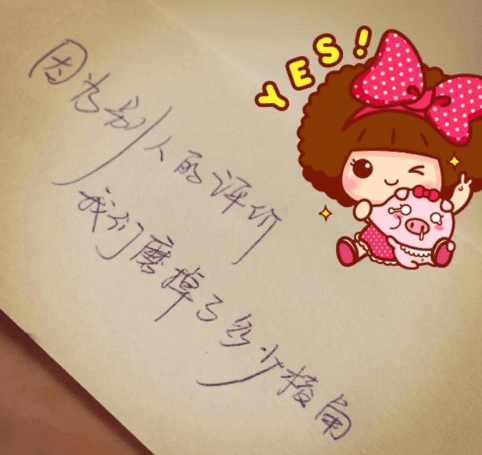 YES!
因为别人的评价
我们磨掉了多少棱角